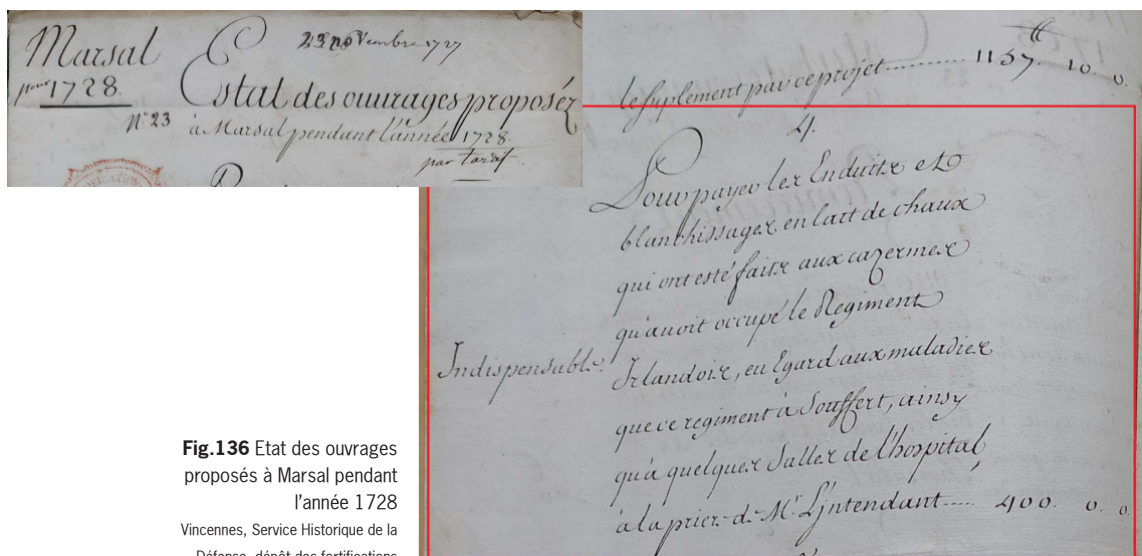 Marsal
pour 1728.
23 novembre 1727
Estat des ouurages proposéz
N° 23
à Marsal pendant l'année 1728
par tarif.
le suplement par ce projet ............ 1157. 10. 0.
4.
Pour payer les Enduits et
blanchissages en lait de chaux
qui ont esté faits aux cazermes
qu'auoit occupé le Regiment
Indispensable.
Irlandois, eu Egard aux maladies
que ce regiment à Souffert, ainsy
qu'à quelques Salles de l'hospital
à la prier. de Mr. L'jntendant ..... 400. 0. 0.
Fig.136 Etat des ouvrages
proposés à Marsal pendant
l'année 1728
Vincennes, Service Historique de la
Défense, dépôt des fortifications